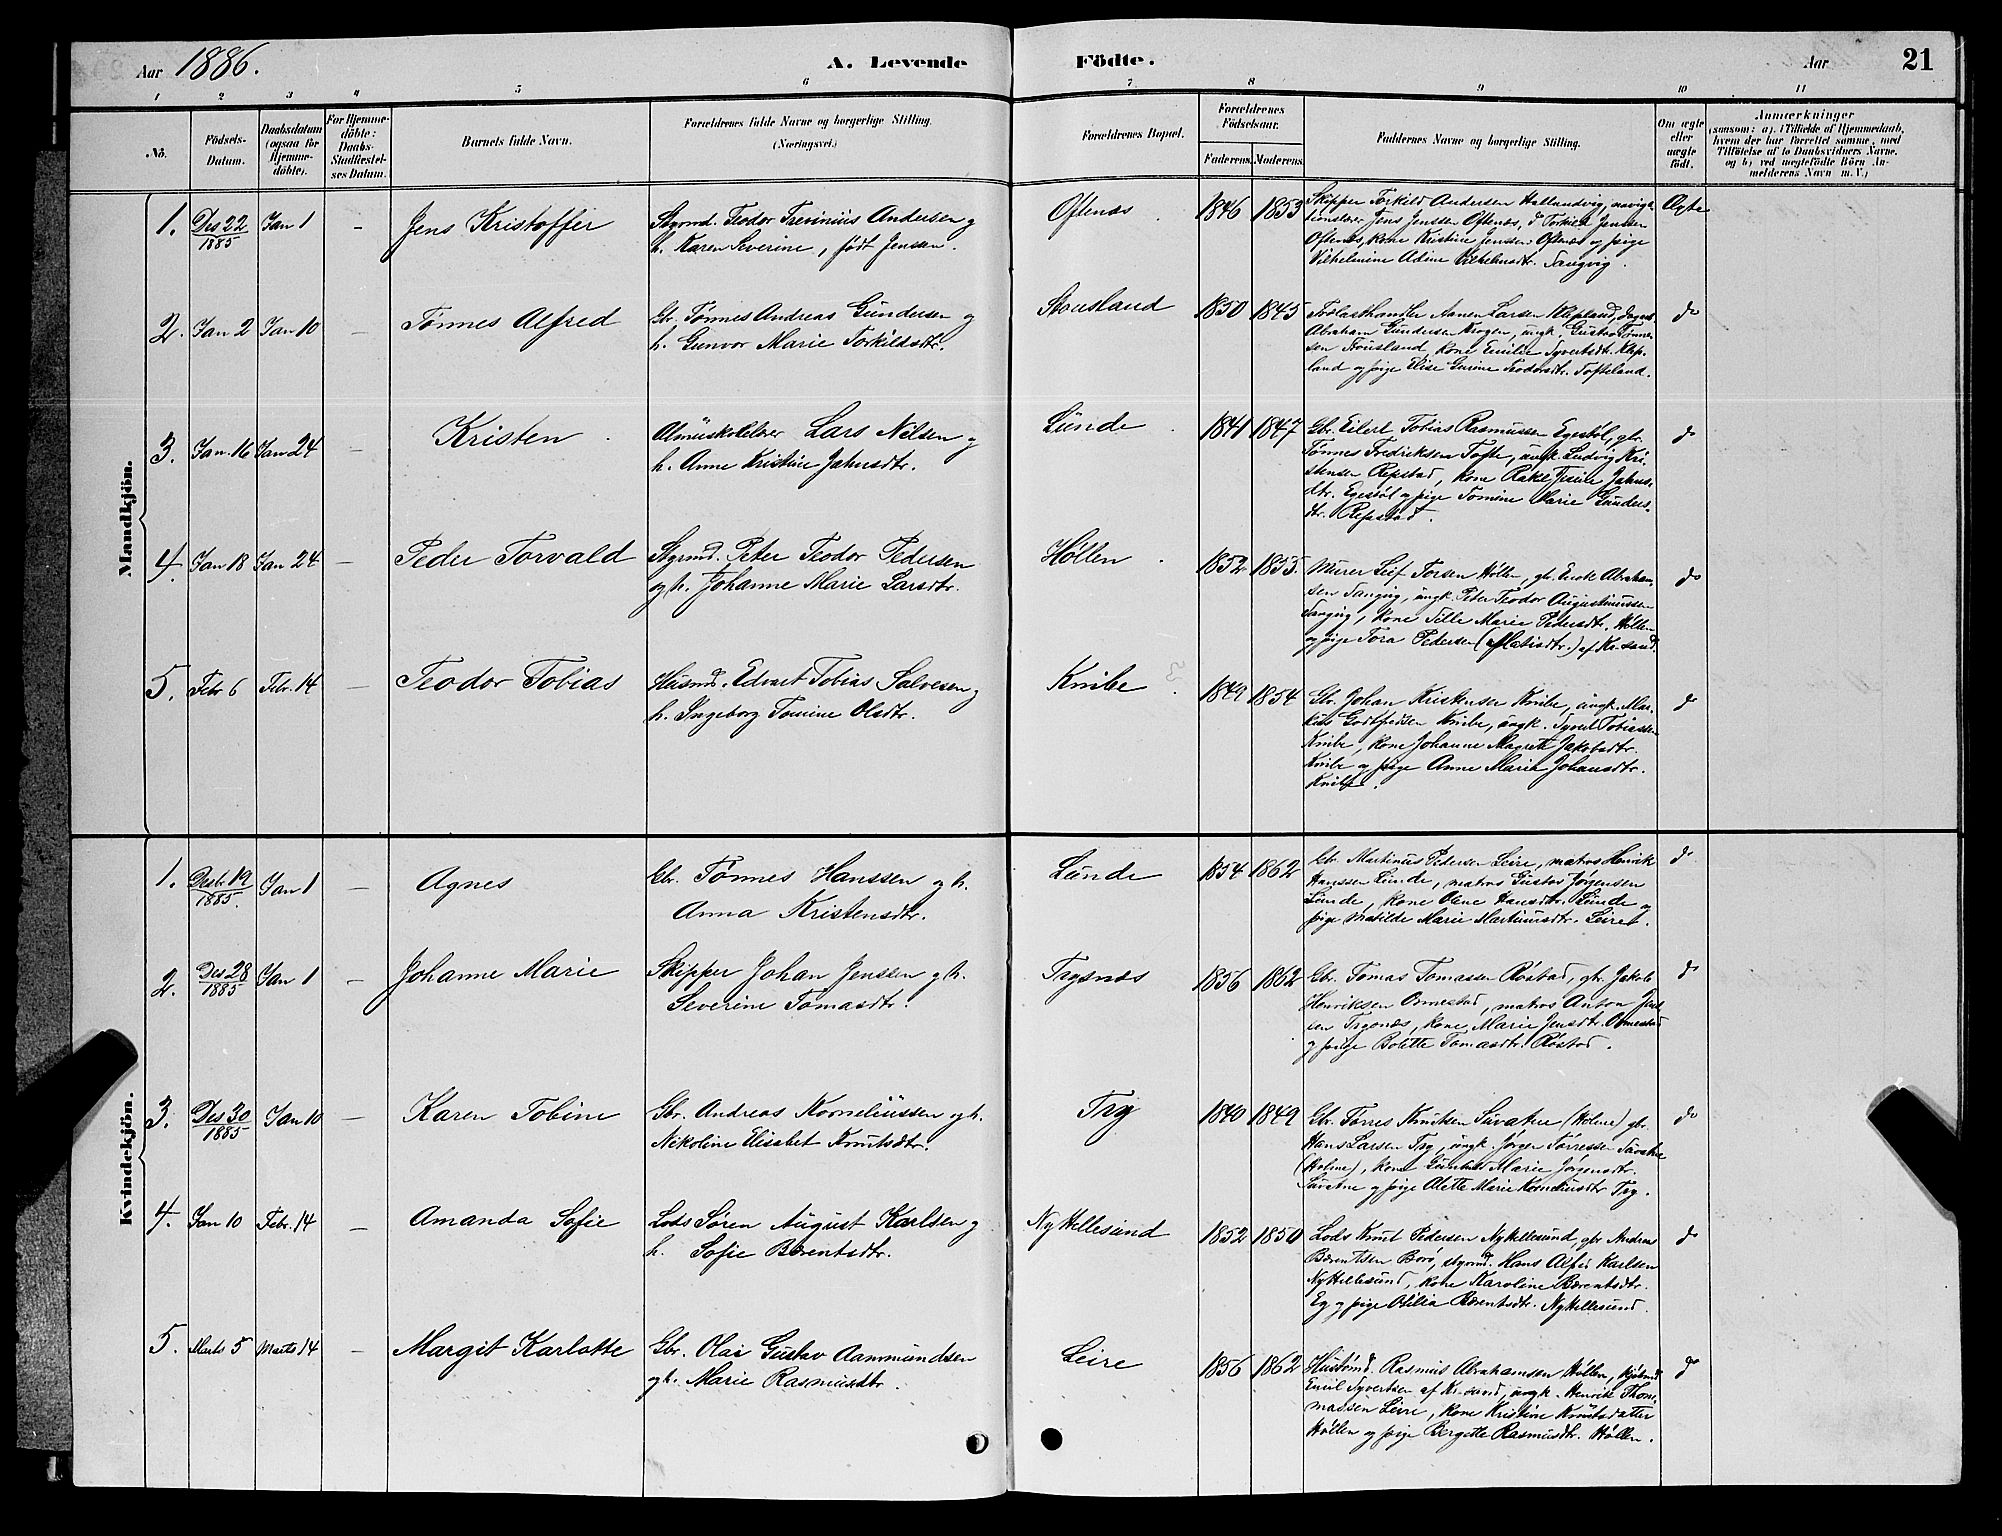 Aar 1886. A. Levende Födte. Aar 21
1 2 3 4 5 6 7 8 9 10 11
No. Födsels-Datum. Daabsdatum (ogsaa for Hjemme-döbte). For Hjemme-döbte: Daabs-Stadfæstelses Datum. Barnets fulde Navn. Forældrenes fulde Navne og borgerlige Stilling. (Næringsvei.) Forældrenes Bopæl. Forældrenes Födselsaar. Faderens. Moderens. Faddernes Navne og borgerlige Stilling. Om ægte eller uægte født. Anmærkninger
(saasom: a). i Tilfælde af Hjemmedaab,
hvem der har forrettet samme, med
Tilføielse af to Daabsvidners Navne,
og b) ved uægtefödte Börn An-
melderens Navn m. V.)
Mandkjön.
1. Des 22 1885 Jan 1 – Jens Kristoffer
Styrmd. Teodor Trevinius Andersen og
h. Karen Severine, født Jensen.
Oftenæs . 1846 1853
Skipper Torkild Andersen Hallandvig, navigt-
ionslærer Jens Jenssen Oftenæs, do Torkild Jenssen
Oftenæs, kone Kristine Jenssen Oftenæs og pige
Vilhelmine Adine Vilhelmsdtr. Tangvig.
Ægte
2. Jan 2 Jan 10 – Tønnes Alfred
Gbr. Tønnes Andreas Gundersen og
h. Gunvor Marie Torkildsdtr.
Stousland 1850 1845
Trælasthandler Aanen Larsen Klepland,
Abraham Gundersen Krogen, ungk. Gustav Tønne-
sen Stousland, kone Emilie Syvertsdtr. Klep-
land og pige Elise Gurine Teodorsdtr. Tofteland.
do
3. Jan. 16 Jan 24 – Kristen .
Almueskolelærer Lars Nilsen og
h. Anne Kristine Jahnsdtr.
Lunde . 1841 1847
Gbr. Eilert Tobias Rasmussen Egestøl, gbr.
Tønnes Fredriksen Tofte, ungk. Ludvig Kri-
stensen Repstad, kone Rakel Jesine Jahns-
dtr. Egestøl og pige Tomine Marie Gunders-
dtr. Repstad.
do
4. Jan 18 Jan 24 – Peder Torvald
Styrmd. Peter Teodor Pedersen
og h. Johanne Marie Larsdtr.
Høllen . 1852 1855.
Murer Leif Torsen Høllen, gbr. Enok Abraham-
sen Tangvig, ungk. Peter Teodor Augustinussen
Tangvig, kone Sille Marie Pedersdtr. Høllen
og pige Tora Pedersen af Kr.sand.
do
5. Febr 6 Febr. 14 – Teodor Tobias
Husmd. Edvart Tobias Salvesen og
h. Ingeborg Tomine Olsdtr.
Knibe 1849 1854
Gbr. Johan Kristensen Knibe, ungk. Mar-
kus Godtfredsen Knibe, ungk. Syvert Tobiassen
Knibe, kone Johanne Magrete Jakobsdtr.
Knibe og pige Anne Marie Johansdtr.
Knibe.
do
Kvindekjön.
1. Desbr. 19 1885. Jan 1 – Agnes
Gbr. Tønnes Hanssen og h.
Anna Kristensdtr.
Lunde 1854 1862
Gbr. Martinus Pedersen Leire, matros Henrik
Hanssen Lunde, matros Gustav Jørgensen
Lunde, kone Olene Hansdtr. Lunde og
pige Matilde Marie Martinusdtr. Leiret.
do
2. Des 28 1885 Jan 1 – Johanne Marie
Skipper Johan Jenssen og h.
Severine Tomasdtr.
Trysnæs 1856 1862
Gbr. Tomas Tomassen Røstad, gbr. Jakob
Henriksen Ormestad, matros Anton Jens-
sen Trysnæs, kone Marie Jensdtr. Ormestad
og pige Bolette Tomasdtr. Røstad.
do
3. Des 30 1885 Jan 10 – Karen Tobine
Gbr. Andreas Korneliussen og h.
Nikoline Elisabet Knutsdtr.
Try 1840 1849
Gbr. Tørres Knutsen Suvatne (Holme) gbr.
Hans Larsen Try, ungk. Jørgen Tørressen Suvatne
(Holme), kone Gunhild Marie Jørgensdtr.
Suvatne og pige Olette Marie Korneliusdtr Try.
do
4. Jan 10 Febr. 14 – Amanda Sofie
Lods Søren August Karlsen og
h. Sofie Bærentsdtr.
Ny Hellesund 1852 1850
Lods Knut Pedersen Ny Hellesund, gbr Andreas
Bærentsen Borø, styrmd. Hans Alfred Karlsen
Ny Hellesund, kone Karoline Bærentsdtr.
Eg og pige Otilia Bærentsdtr. Ny Hellesund.
do
5. Marts 5 Marts 14 – Margit Karlotte
Gbr. Olai Gustav Aanmundsen
og h. Marie Rasmusdtr.
Leire 1856 1862
Husmd. Rasmus Abrahamsen Høllen, kjøbmd
Emil Syvertsen af Kr.sand, ungk. Henrik Thom-
massen Leire, kone Kristine Knutsdatter
Høllen og pige Bergitte Rasmusdtr. Høllen.
do